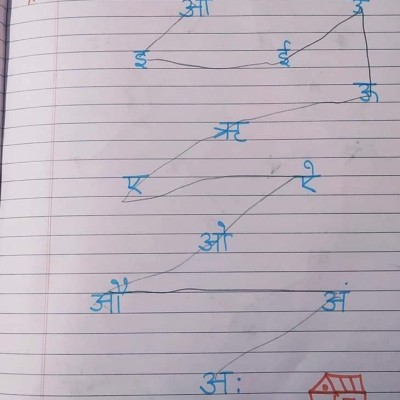 आ
इ ई उ
ऊ
ऋ
ए ऐ
ओ
औ अं
अः